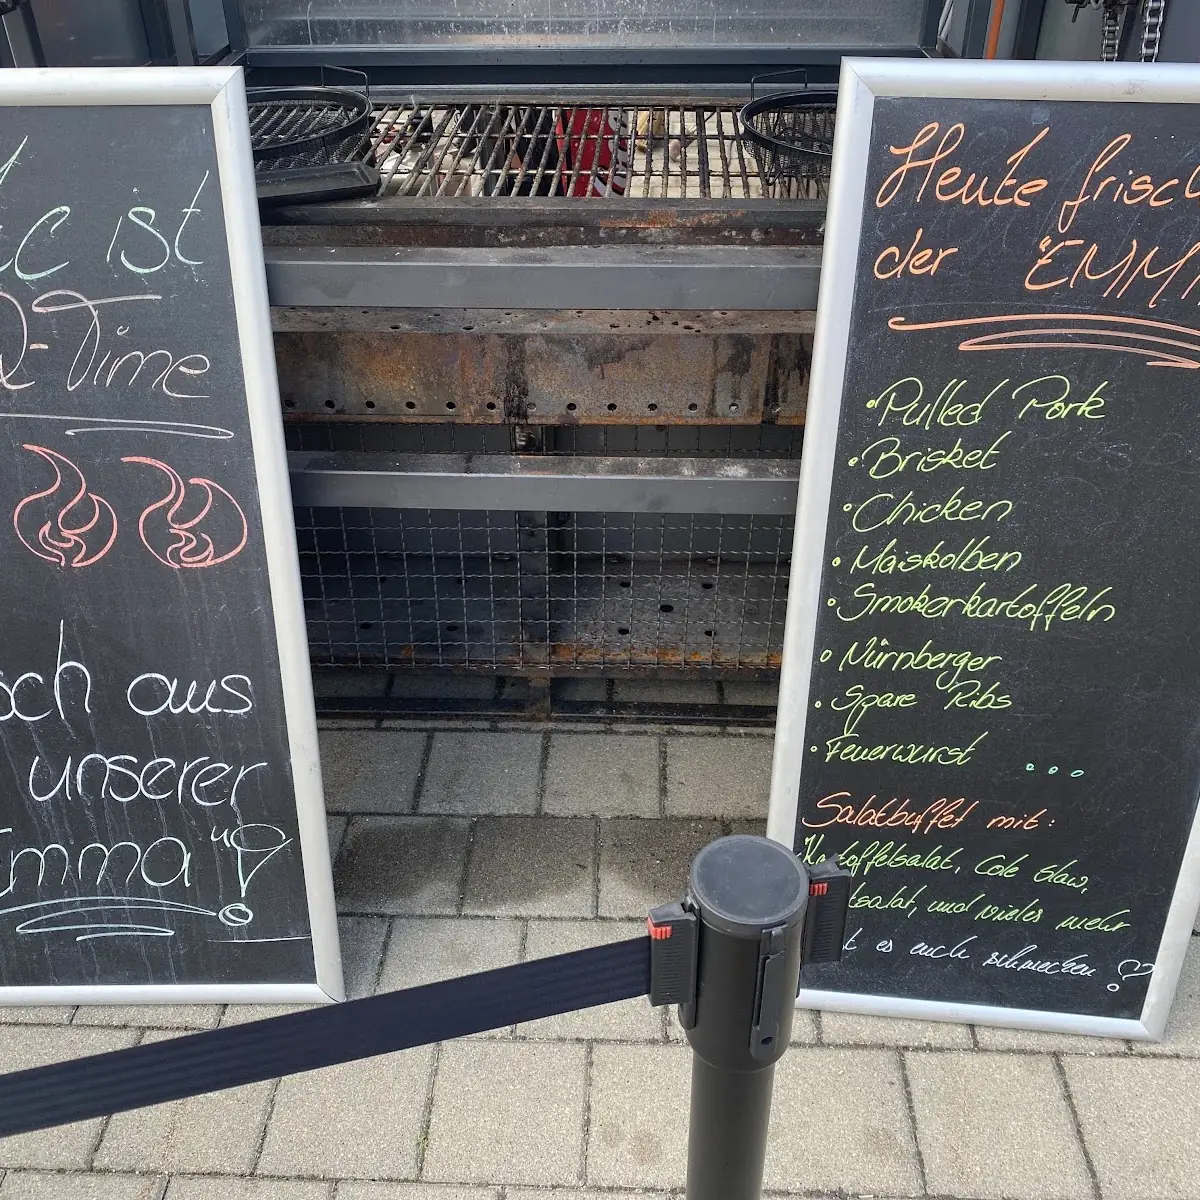 ist
Time
aus
unserer
Emma"
Heute frisch
der "EMMA
• Pulled Pork
• Brisket
• Chicken
• Maiskolben
• Smokerkartoffeln
• Nürnberger
• Spare Ribs
• Feuerwurst ...
Salatbuffet mit:
Kartoffelsalat, Cole Slaw,
tsalat, und vieles mehr
es euch schmecken